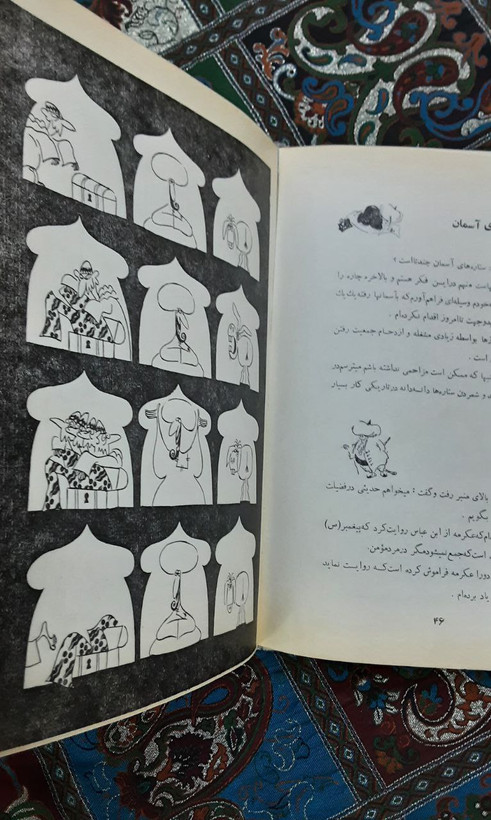 ی آسمان
ستاره‌های آسمان چندتااست ؟
است منهم دراین فکر هستم و بالاخره چاره را
خودم وسیله‌ای فراهم آورم که بآسمانها رفته یك یك
وجهت تاامروز اقدام نکرده‌ام .
ها بواسطه زیادی مشغله و ازدحام جمعیت رفتن
است .
بها که ممکن است مزاحمی نداشته باشم میترسم در
و شمردن ستاره‌ها دانه‌دانه درتاریکی کار بسیار
بالای منبر رفت وگفت : میخواهم حدیثی درفضیلت
بگویم .
ام که عکرمه از ابن عباس روایت کرد که پیغمبر (ص)
است که جمع نمیشود مگر در مرد مؤمن.
دورا عکرمه فراموش کرده است که روایت نماید
یاد برده‌ام .
۴۶